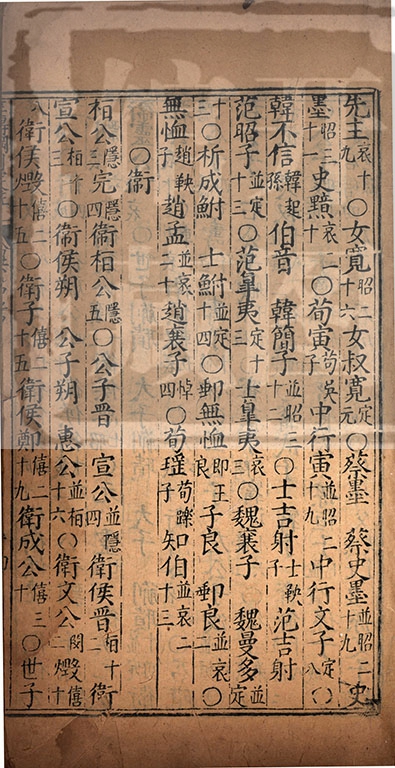 先主哀十九〇女寬昭二十六女叔寬定元〇蔡墨　蔡史墨並昭二十九史
墨昭三十一史黯哀二十〇荀寅荀吳子中行寅並昭二十九中行文子定八〇
韓不信韓起孫伯音　韓簡子並昭三十二〇士吉射士鞅子范吉射
范昭子並定十三〇范皐夷定十三士皐夷哀三〇魏襄子　魏曼多並定
十三〇析成鮒　士鮒並定十四〇郵無恤即王良子良　郵良並哀二〇
無恤趙鞅子趙孟並哀二十趙襄子悼四〇荀瑤荀躒子知伯並哀二十三
〇衛
桓公隱三完隱四衛桓公隱五〇公子晉　宣公並隱四衛侯晉桓十二衛
宣公桓十三〇衛侯朔　公子朔　惠公並桓十六〇衛文公閔二燬僖二十
八衛侯燬僖二十五〇衛子僖二十五衛侯鄭僖二十九衛成公僖三十〇世子